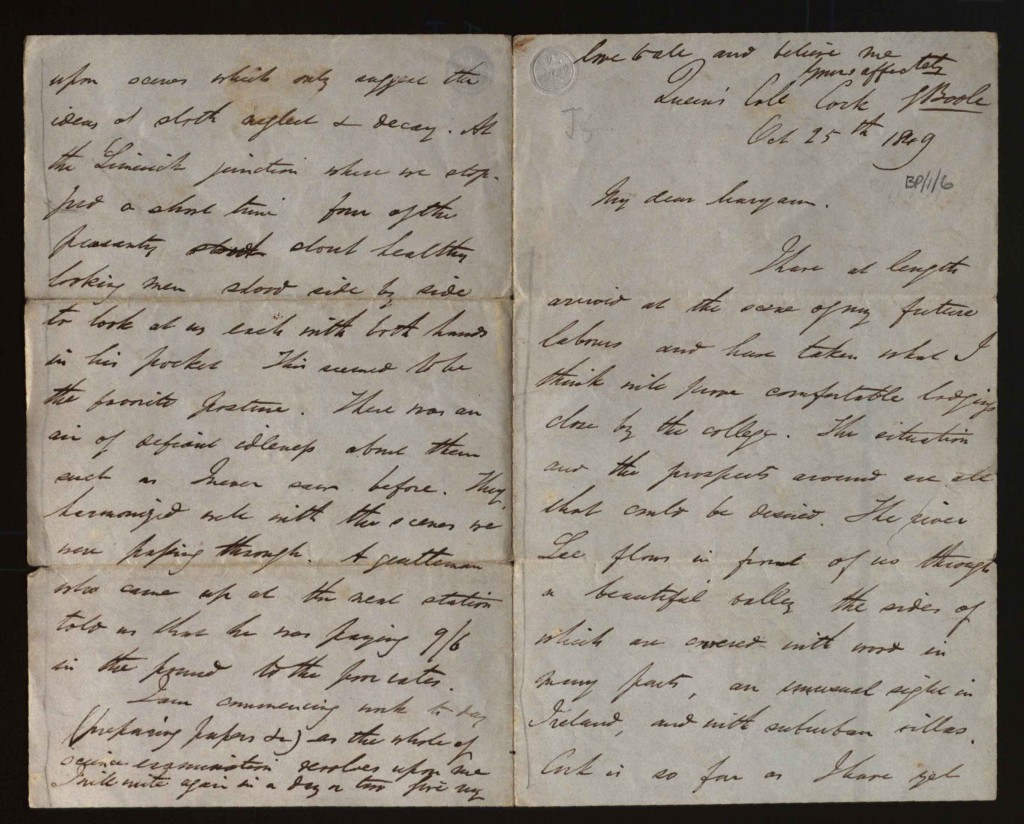 love to all and believe me
yours affectly
GBoole
Queen's Coll Cork
Oct 25th 1849
BP/1/6
My dear Maryann.
I have at length
arrived at the scene of my future
labours and have taken what I
think will prove comfortable lodgings
close by the college. The situation
and the prospects around are all
that could be desired. The river
Lee flows in front of us through
a beautiful valley the sides of
which are covered with wood in
many parts, an unusual sight in
Ireland, and with suburban villas.
Cork is so far as I have yet
upon scenes which only suggest the
ideas of sloth neglect & decay. At
the Limerick junction where we stop-
ped a short time four of the
peasantry stout healthy
looking men stood side by side
to look at us each with both hands
in his pocket This seemed to be
the favorite posture. There was an
air of defiant idleness about them
such as I never saw before. They
harmonized well with the scenes we
were passing through. A gentleman
who came up at the next station
told us that he was paying 9/6
in the pound to the poor rates.
I am commencing work to day
(preparing papers &c) as the whole of
science examination devolves upon me
I will write again in a day or two give my